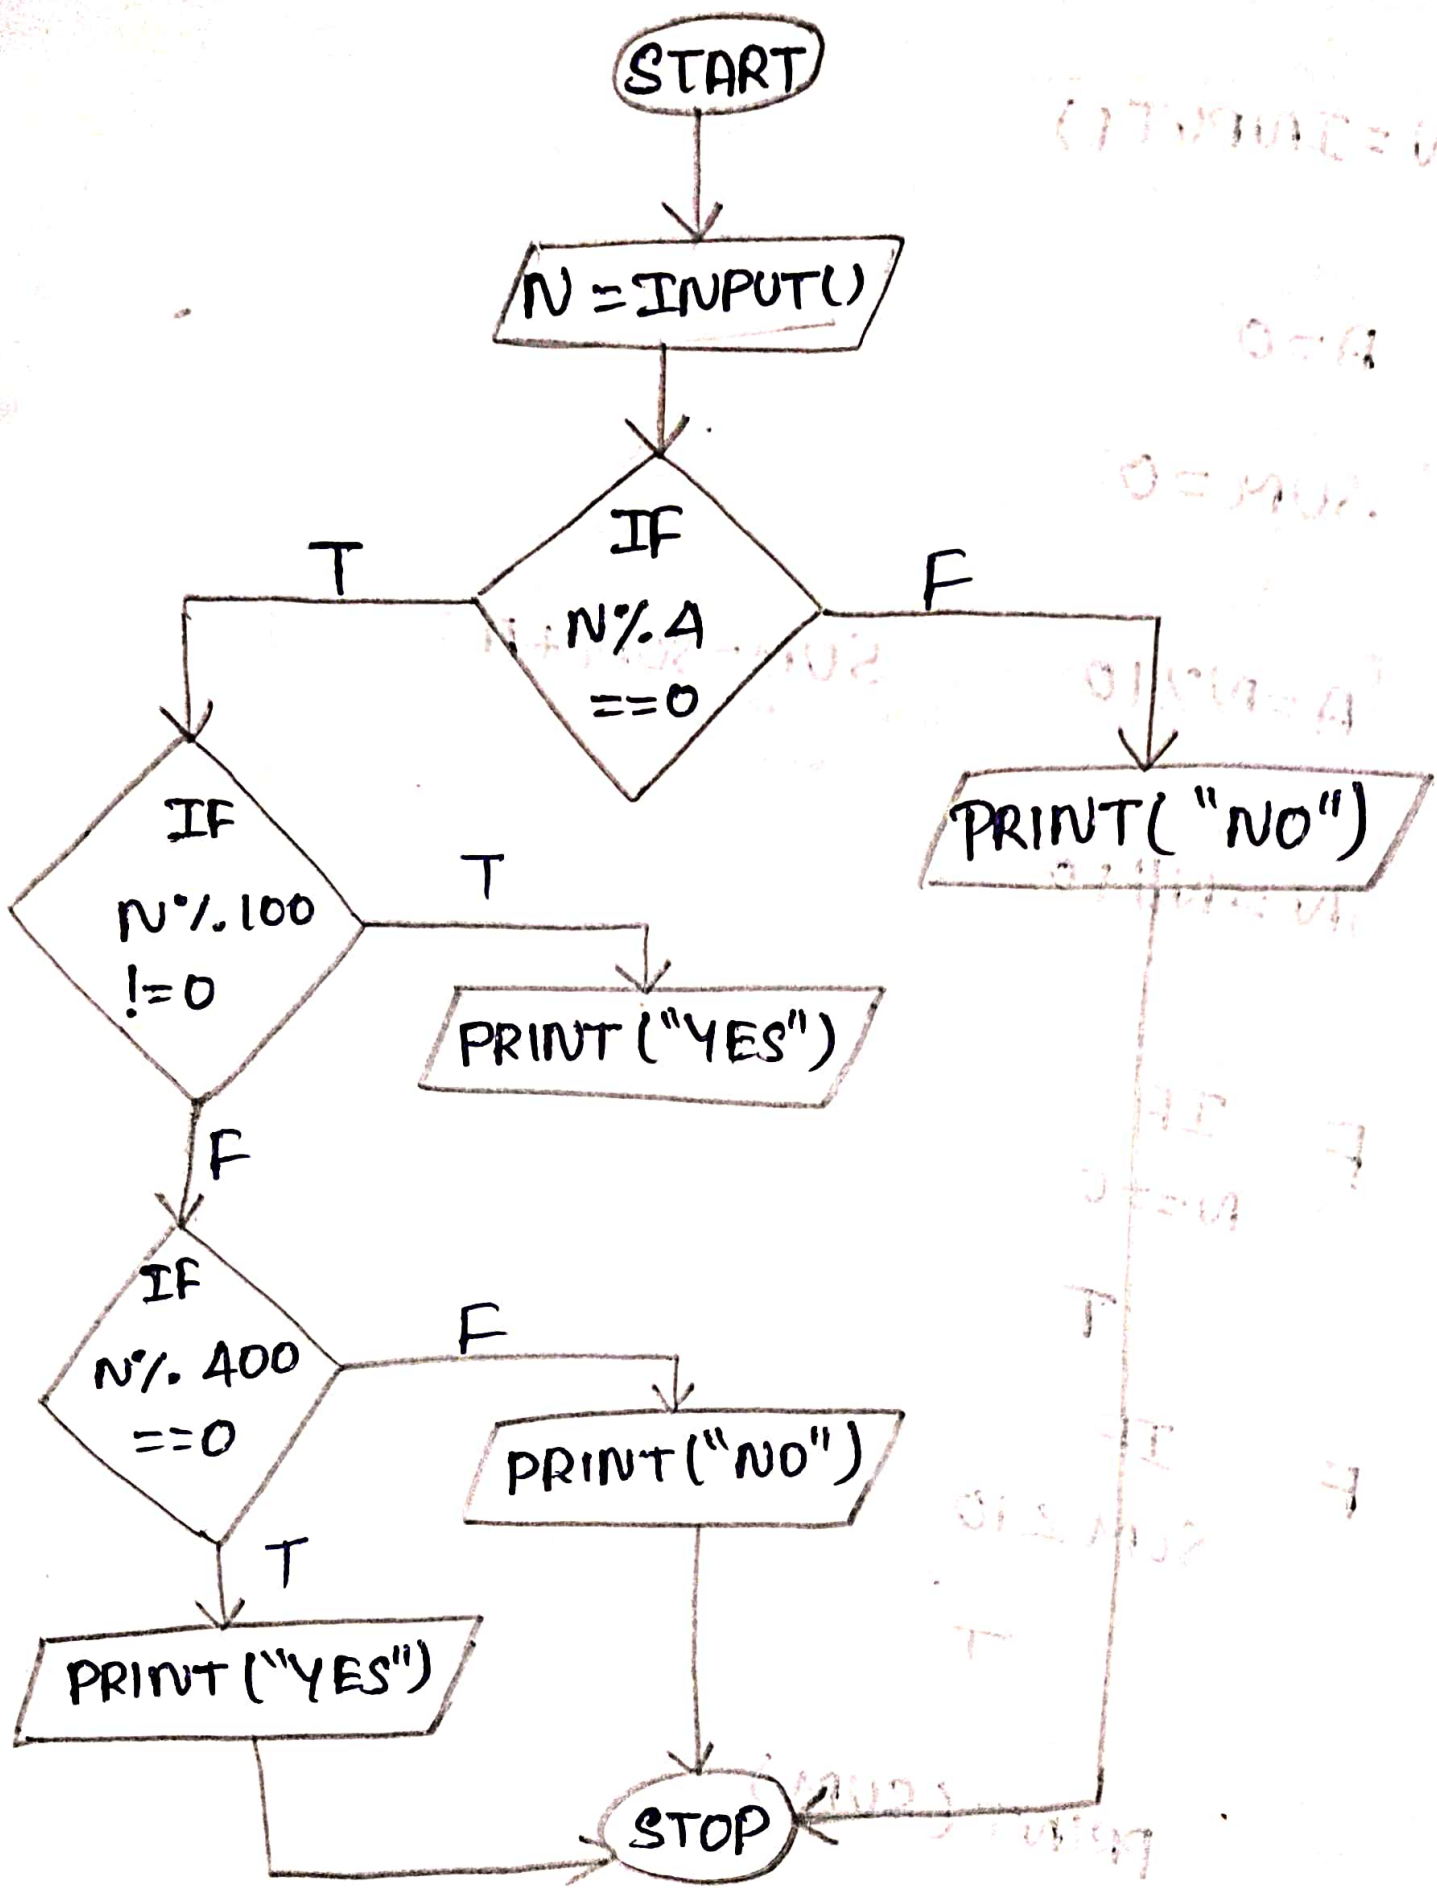 START
N=INPUT()
IF
N%4
==0
T
F
IF
N%100
!=0
T
PRINT("NO")
PRINT("YES")
F
IF
N%400
==0
F
PRINT("NO")
T
PRINT("YES")
STOP